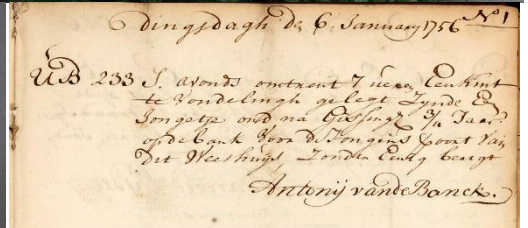 Dingsdagh de 6 January 1756 N° 1
UB 233 S. avonds omtrent 7 ueren Een kint
te Vondelingh gelegt Zynde Een
Jongetje oud na Gissing 3/4 Jaar
op de bank Voor d Jongens Poort Van
Dit Weeshuys Zonder Eenig berigt
Antonij vande Banck.